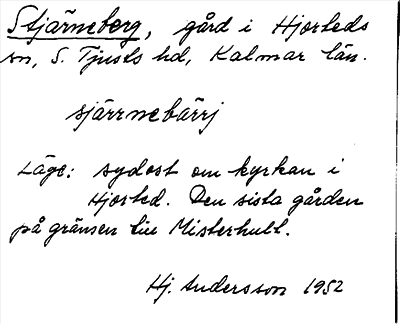 Stjärneberg, gård i Hjorteds
sn, S. Tjusts hd, Kalmar län.
sjärrnebärrj
Läge: sydost om kyrkan i
Hjorted. Den sista gården
på gränsen till Misterhult.
Hj. Andersson 1952